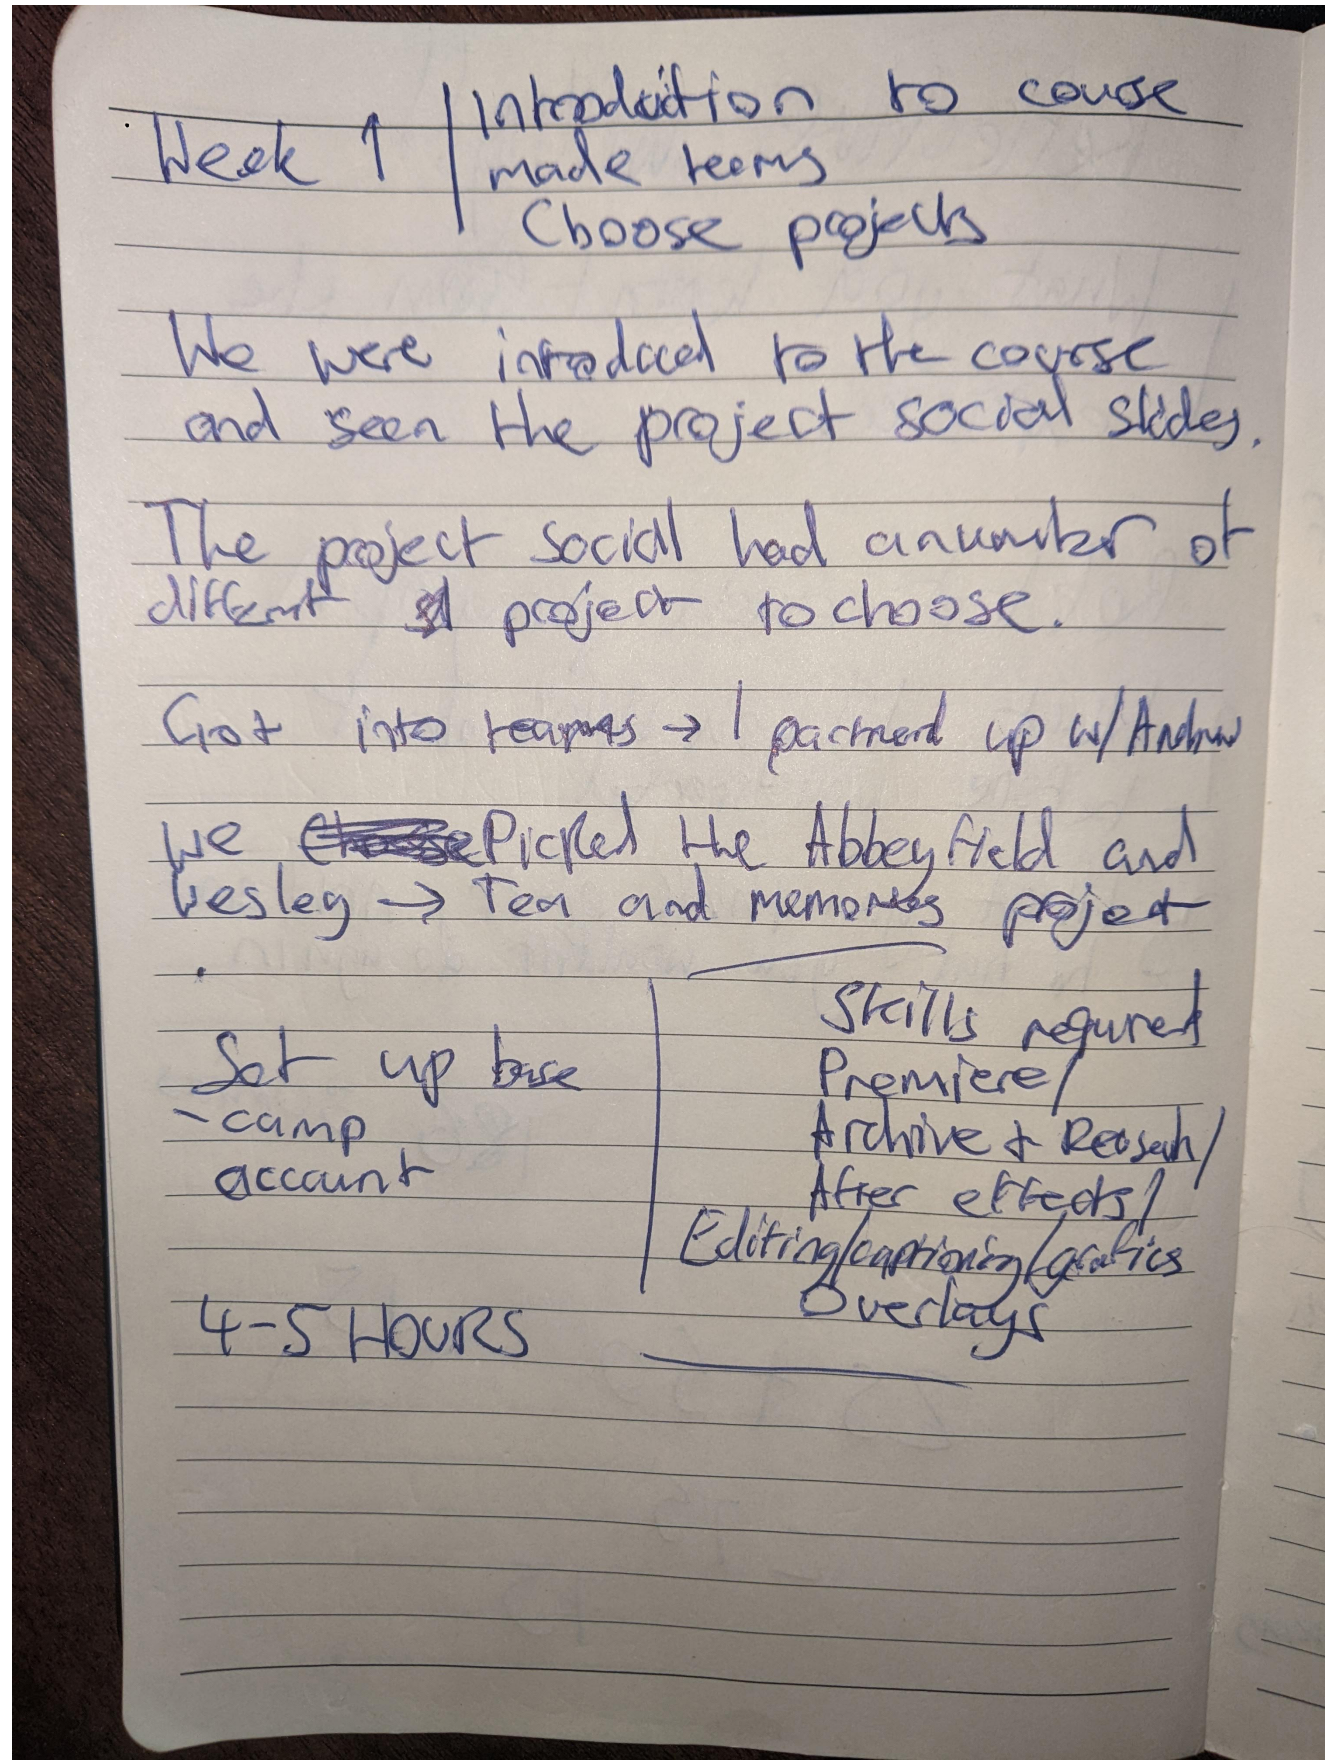 Week 1
Introduction to course
made teems
Choose projects
We were introduced to the course
and seen the project social slides.
The project social had a number of
different project to choose.
Got into teams → I partnerd up w/ Andrew
We Picked the Abbeyfield and
Wesley → Tea and memories project
Set up base
-camp
account
4-5 HOURS
Skills required
Premiere/
Archive + Reserch/
After effects/
Editing/captioning/grafics
Overlays